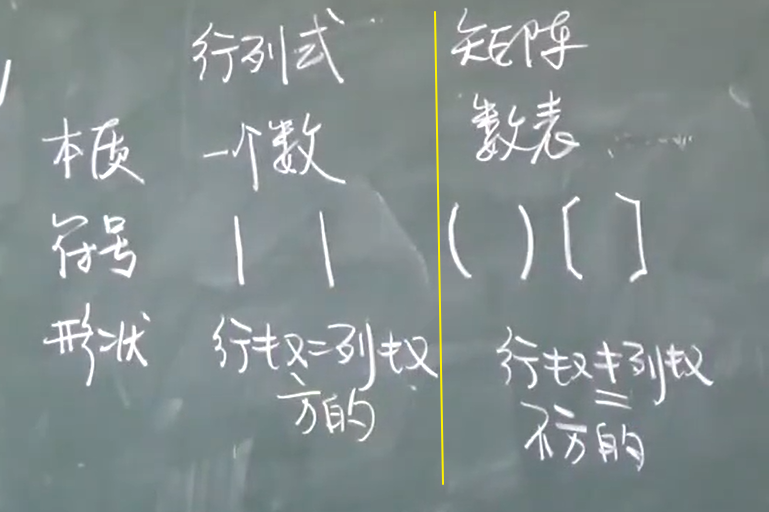 行列式 矩阵
本质 一个数 数表
符号 | | ( ) [ ]
形状 行数=列数 行数≠列数
方的 不方的